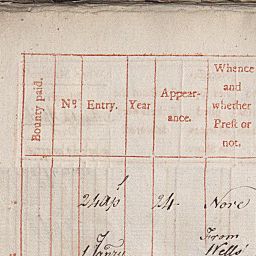 Bounty paid.
Nº
Entry.
Year
Appear-
ance.
Whence
and
whether
Prest or
not.
24 Ap^l
24
Nore
From
Wells